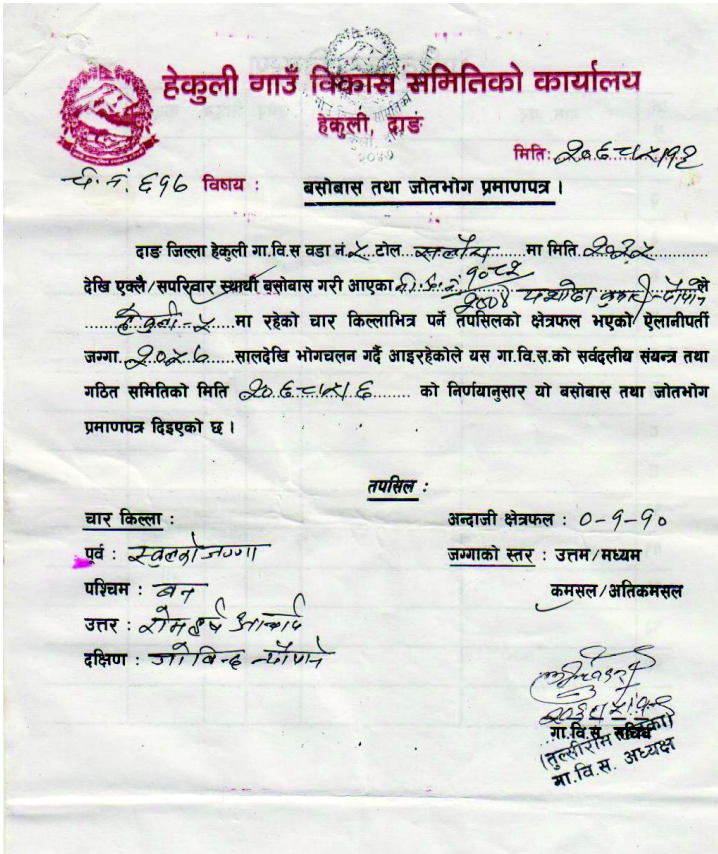 हेकुली गाउँ विकास समितिको कार्यालय
हेकुली, दाङ
२०४७
मिति:
च. नं. ६१७ विषय : बसोबास तथा जोतभोग प्रमाणपत्र ।
दाङ जिल्ला हेकुली गा.वि.स वडा नं. ५ टोल मा मिति २०३५
देखि एक्लै/सपरिवार स्थायी बसोबास गरी आएका ले
हेकुली-५ मा रहेको चार किल्लाभित्र पर्ने तपसिलको क्षेत्रफल भएको ऐलानीपर्ती
जग्गा २०४७ सालदेखि भोगचलन गर्दै आइरहेकोले यस गा.वि.स.को सर्वदलीय संयन्त्र तथा
गठित समितिको मिति को निर्णयानुसार यो बसोबास तथा जोतभोग
प्रमाणपत्र दिइएको छ ।
तपसिल :
चार किल्ला :
पूर्व : स्कुलको जग्गा
पश्चिम : वन
उत्तर :
दक्षिण : गोविन्द न्यौपाने
अन्दाजी क्षेत्रफल : ०-१-१०
जग्गाको स्तर : उत्तम/मध्यम
कमसल/अतिकमसल
गा.वि.स. सचिव
गा.वि.स. अध्यक्ष